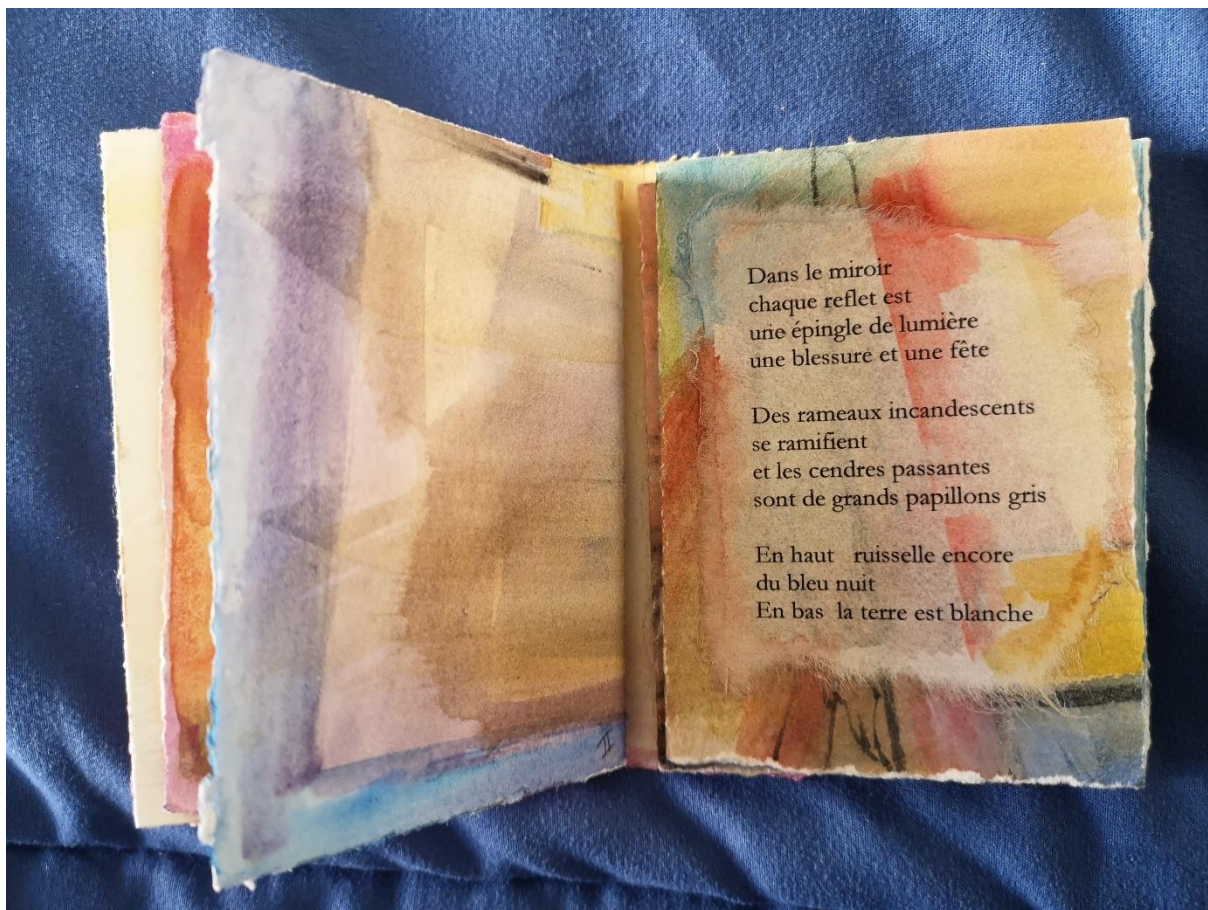 Dans le miroir
chaque reflet est
une épingle de lumière
une blessure et une fête
Des rameaux incandescents
se ramifient
et les cendres passantes
sont de grands papillons gris
En haut   ruisselle encore
du bleu nuit
En bas  la terre est blanche